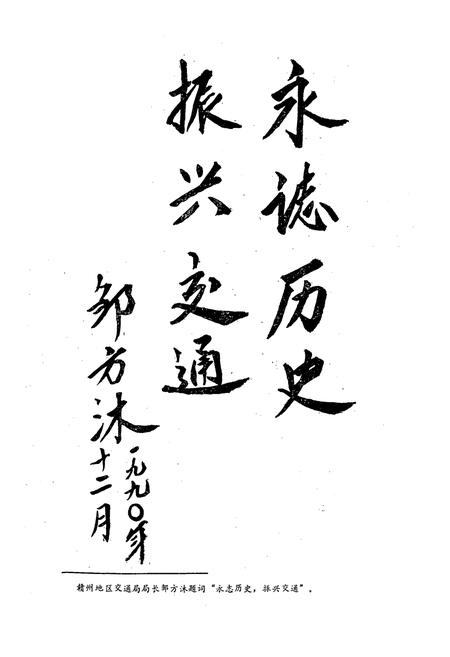 永誌历史
振兴交通
邹方沐
一九九〇年
十二月
赣州地区交通局局长邹方沐题词“永志历史，振兴交通”。